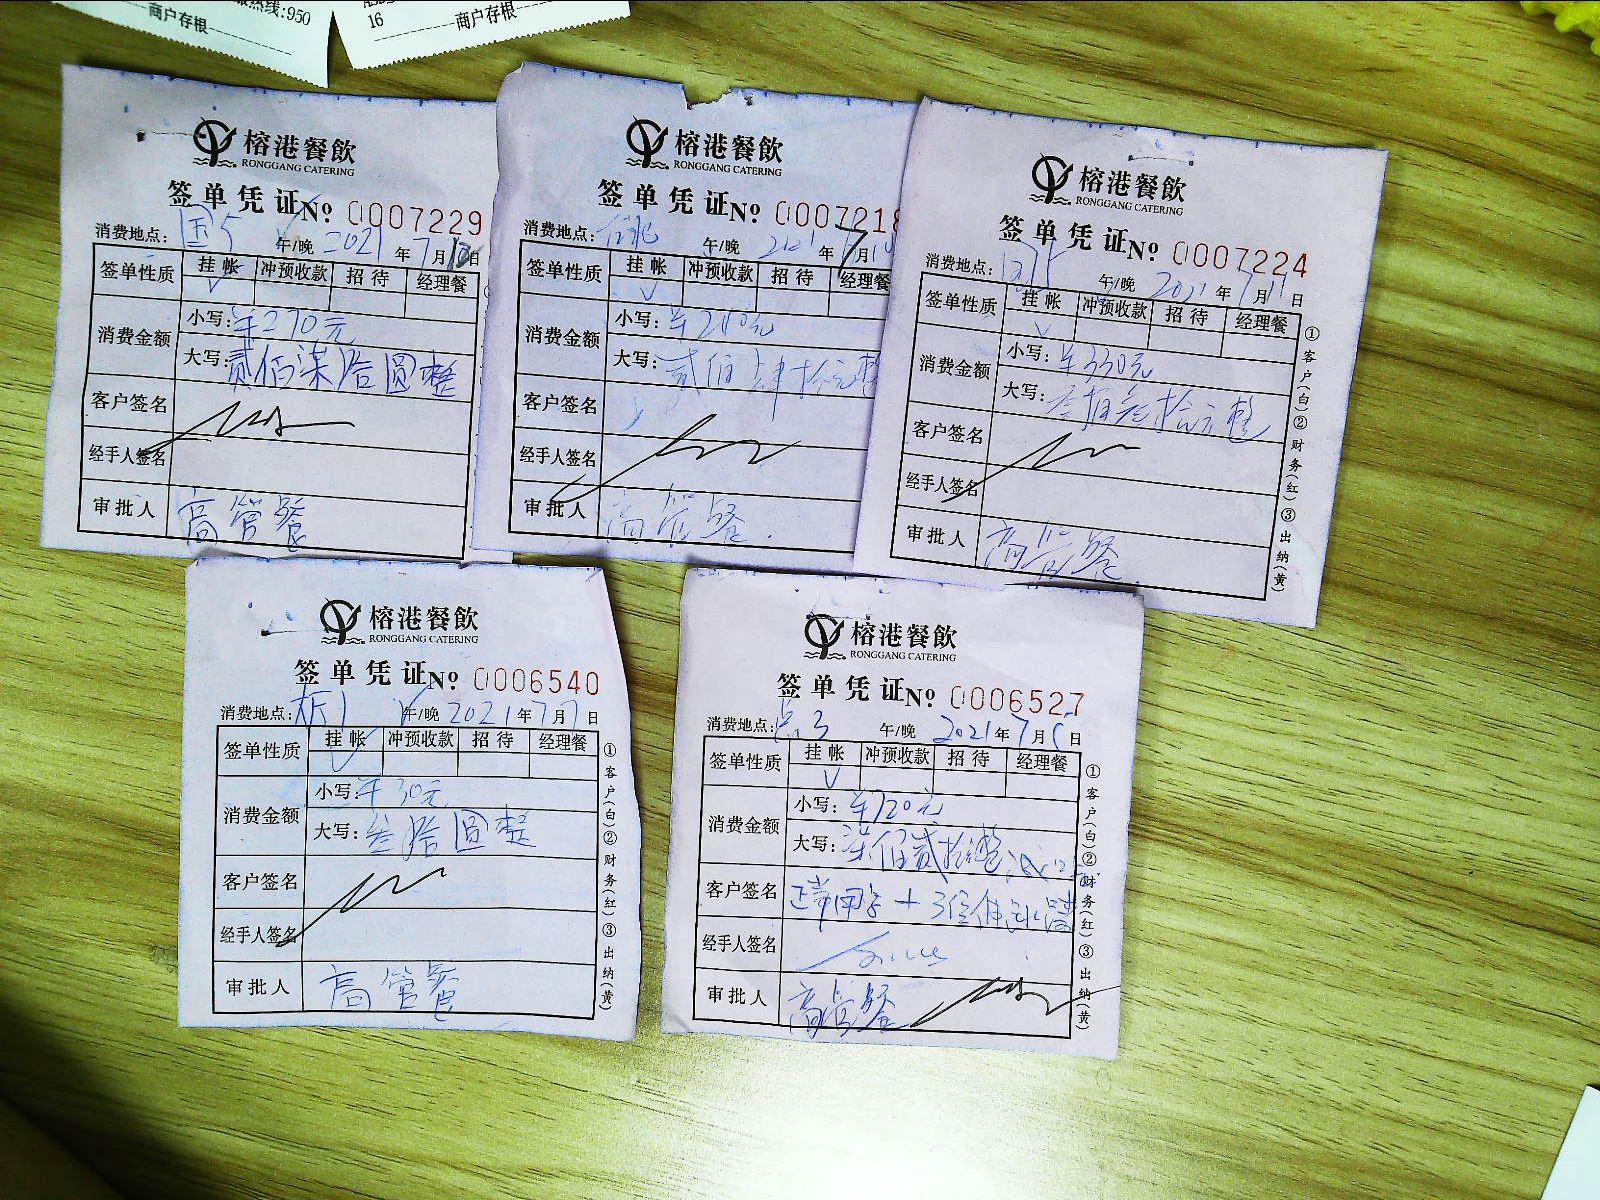 热线:950
商户存根
16
商户存根
榕港餐飲
RONGGANG CATERING
签单凭证№ 0007229
消费地点: 国5 午/晚 2021年7月12日
签单性质 挂帐 冲预收款 招待 经理餐
✓
消费金额 小写: ¥270元
大写: 贰佰柒拾圆整
客户签名
经手人签名
审批人 高管餐
榕港餐飲
RONGGANG CATERING
签单凭证№ 0007218
消费地点: 午/晚 2021年7月10
签单性质 挂帐 冲预收款 招待 经理餐
✓
消费金额 小写: ¥240元
大写: 贰佰肆拾元整
客户签名
经手人签名
审批人 高管餐
榕港餐飲
RONGGANG CATERING
签单凭证№ 0007224
消费地点: 午/晚 2021年7月11日
签单性质 挂帐 冲预收款 招待 经理餐
✓
消费金额 小写: ¥330元
大写: 叁佰叁拾元整
客户签名
经手人签名
审批人 高管餐
①客户(白)②财务(红)③出纳(黄)
榕港餐飲
RONGGANG CATERING
签单凭证№ 0006540
消费地点: 午/晚 2021年7月7日
签单性质 挂帐 冲预收款 招待 经理餐
✓
消费金额 小写: ¥30元
大写: 叁拾圆整
客户签名
经手人签名
审批人 高管餐
①客户(白)②财务(红)③出纳(黄)
榕港餐飲
RONGGANG CATERING
签单凭证№ 0006527
消费地点: 午/晚 2021年7月6日
签单性质 挂帐 冲预收款 招待 经理餐
✓
消费金额 小写: ¥720元
大写: 柒佰贰拾元整
客户签名 正常用字+3位
经手人签名
审批人 高管餐
①客户(白)②财务(红)③出纳(黄)